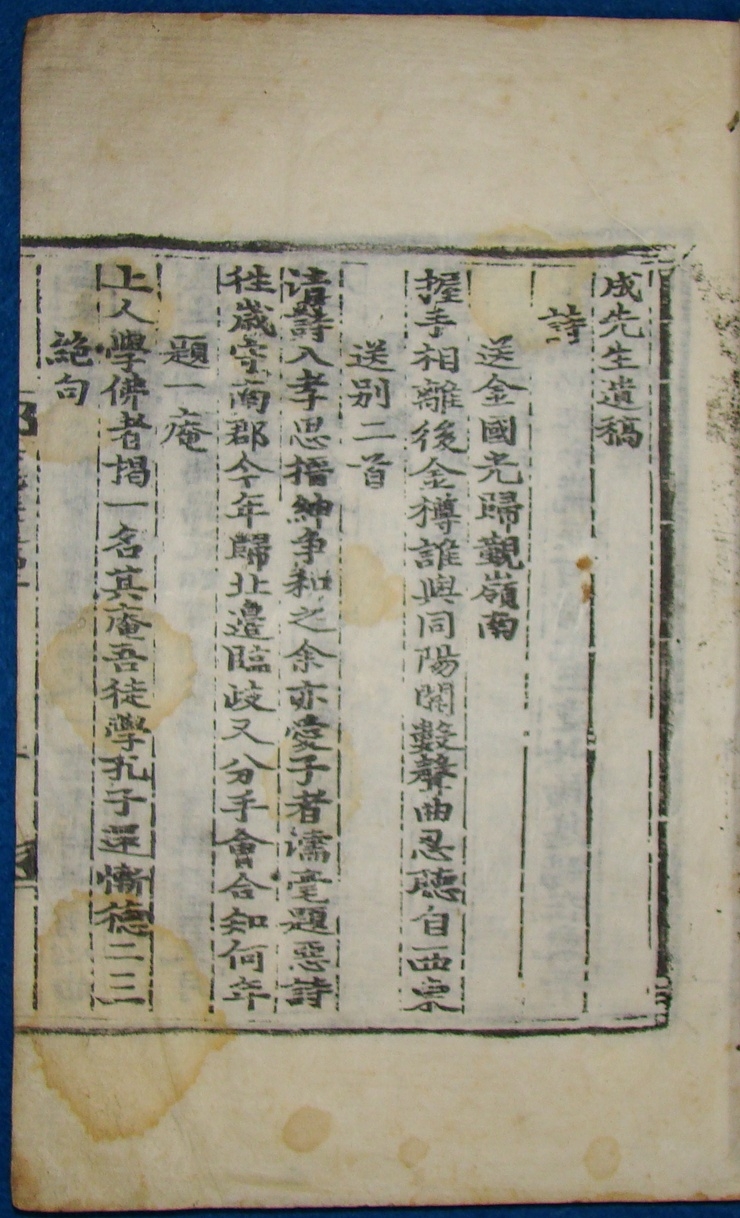 成先生遺稿
詩
送金國光歸覲嶺南
握手相離後金樽誰與同陽關數聲曲忍聽自西東
送別二首
淸詩入孝思搢紳爭和之余亦愛子者濡毫題惡詩
往歲守南郡今年歸北邊臨歧又分手會合知何年
題一庵
上人學佛者揭一名其庵吾徒學孔子還慚德二三
絶句